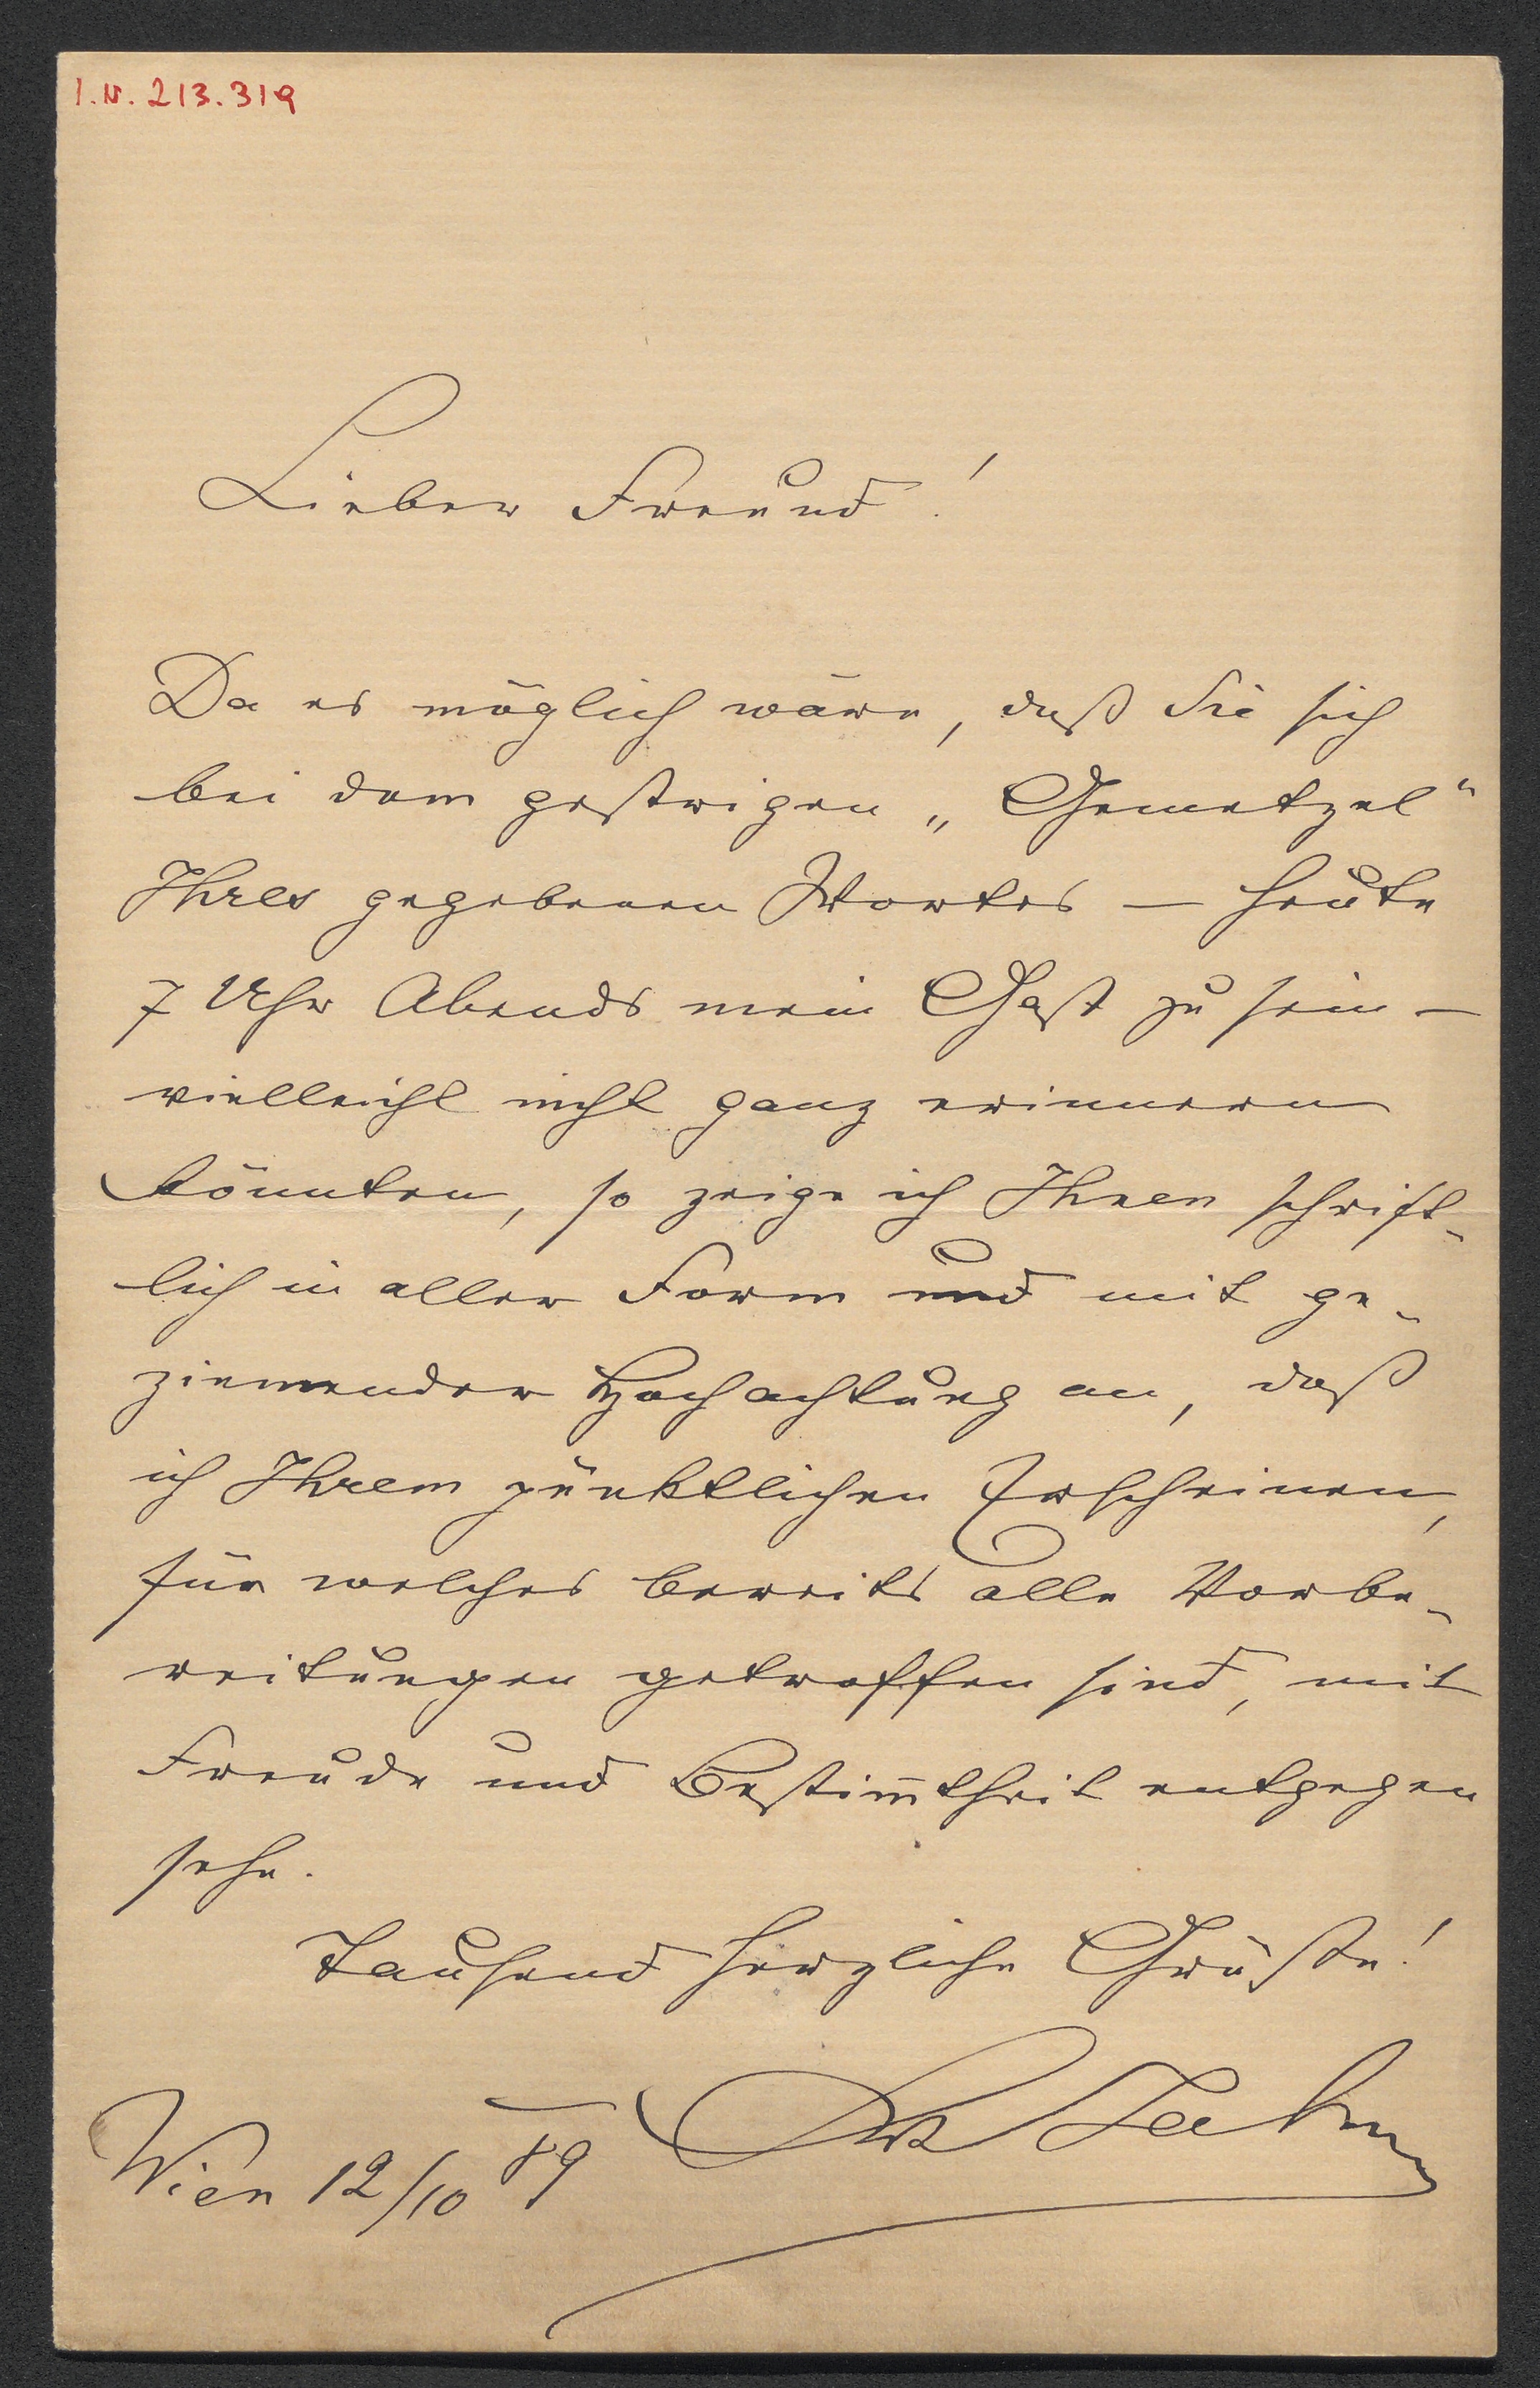 I.N. 213.319
Lieber Freund!
Da es möglich wäre, daß Sie sich
bei dem gestrigen „Gemetzel"
Ihres gegebenen Wortes — heute
7 Uhr Abends mein Gast zu sein —
vielleicht nicht ganz erinnern
könnten, so zeige ich Ihnen schrift-
lich in aller Form und mit ge-
ziemender Hochachtung an, daß
ich Ihrem pünktlichen Erscheinen,
für welches bereits alle Vorbe-
reitungen getroffen sind, mit
Freude und Bestim̄theit entgegen
sehe.
Tausend herzliche Grüße!
Wien 12/10 89 Jahn